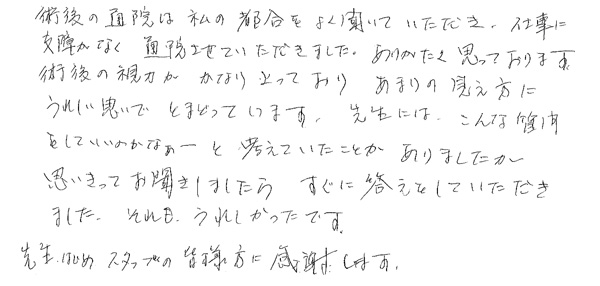 術後の通院は私の都合をよく聞いていただき、仕事に
支障がなく通院させていただきました。ありがたく思っております。
術後の視力がかなり上っており あまりの見え方に
うれしい思いで とまどっています。先生には、こんな質問
をしていいのかなぁーと考えていたことがありましたが
思いきってお聞きしましたら すぐに答えをしていただき
ました。それも、うれしかったです。
先生はじめスタッフの皆様方に感謝します。